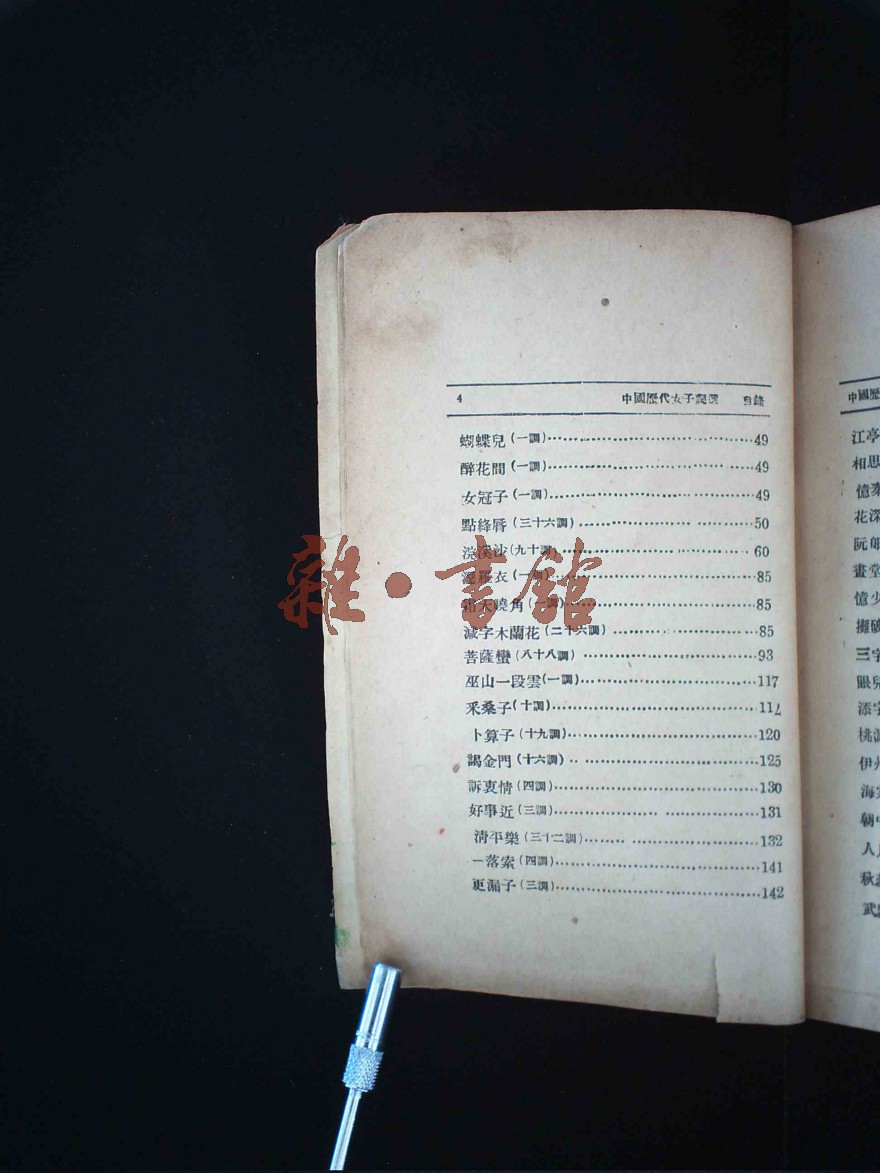 4 中國歷代女子詞選 目錄
蝴蝶兒(一調)……49
醉花間(一調)……49
女冠子(一調)……49
點絳唇(三十六調)……50
浣溪沙(九十調)……60
羅衣(一調)……85
霜天曉角(調)……85
減字木蘭花(二十六調)……85
菩薩蠻(八十八調)……93
巫山一段雲(一調)……117
采桑子(十調)……117
卜算子(十九調)……120
謁金門(十六調)……125
訴衷情(四調)……130
好事近(三調)……131
清平樂(三十二調)……132
一落索(四調)……141
更漏子(三調)……142
雜·書館
中國歷
江亭
相思
憶秦
花深
阮郎
畫堂
憶少
攤破
三字
眼兒
添字
桃源
伊州
海棠
朝中
人月
秋
武